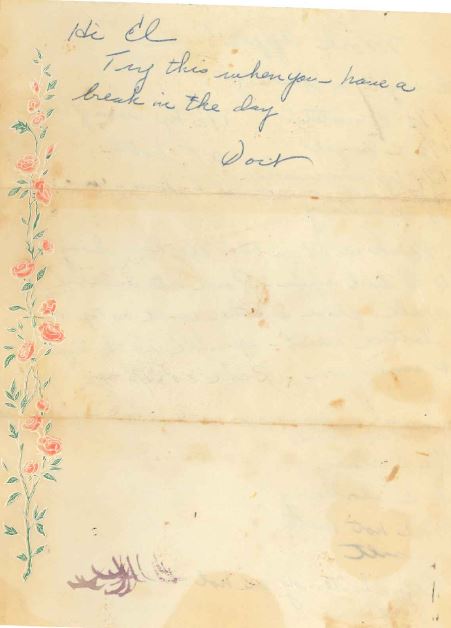 Hi El
Try this when you have a
break in the day